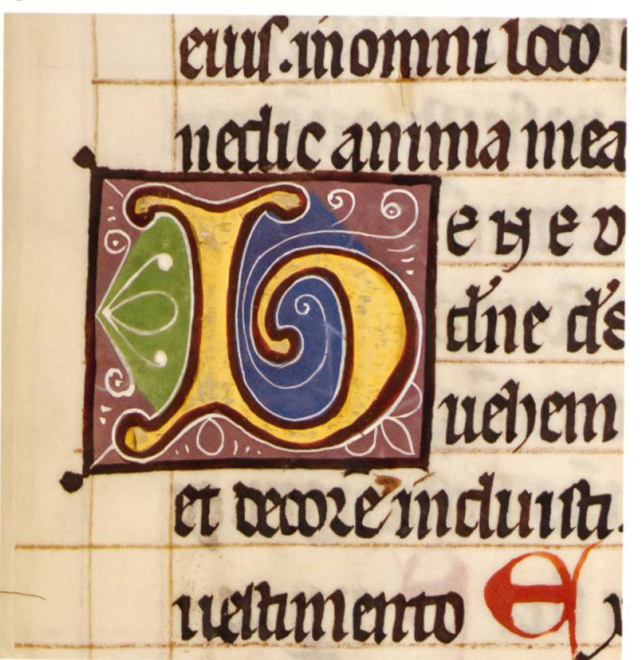 eius. in omni loco
nedic anima mea
BENED
dn̄e ds̄
uehem
et decorē induisti.
uestimento Ex